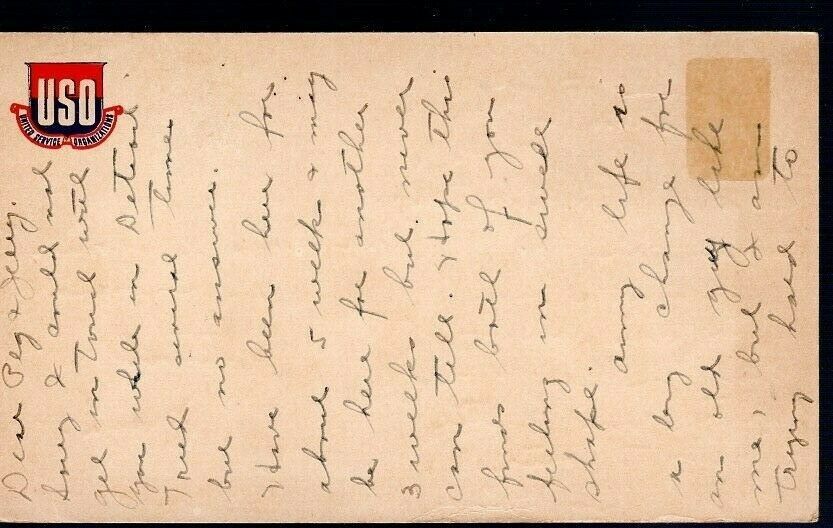 USO
UNITED SERVICE ORGANIZATIONS
Dear Peg & Jerry.
Sorry I could not
get in touch with
you while in Detroit
Tried several times
but no answer.
Have been here for
about 5 weeks & may
be here for another
3 weeks but never
can tell. Hope this
finds both of you
feeling in swell
shape.
army life is
a big change for
an old guy like
me, but I am
trying hard to